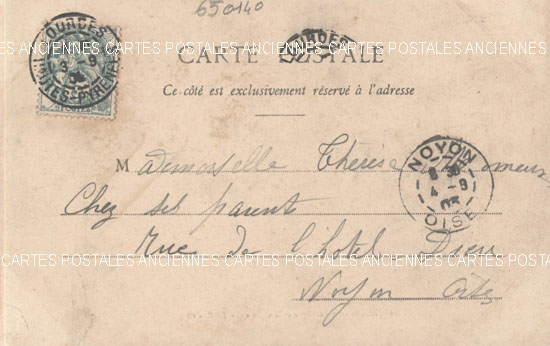 650140
LOURDES
3 - 9
HTES-PYRÉNÉES
LOURDES
CARTE POSTALE
Ce côté est exclusivement réservé à l'adresse
NOYON
4 - 9
OISE
Mademoiselle Thérèse
Chez ses parents
Rue de l'hôtel Dieu
Noyon Oise
CARTES POSTALES ANCIENNES CARTES POSTALES ANCIENNES CARTES POSTALES ANCIENNES
POSTALES ANCIENNES CARTES POSTALES ANCIENNES CARTES POSTALES ANCIENNES